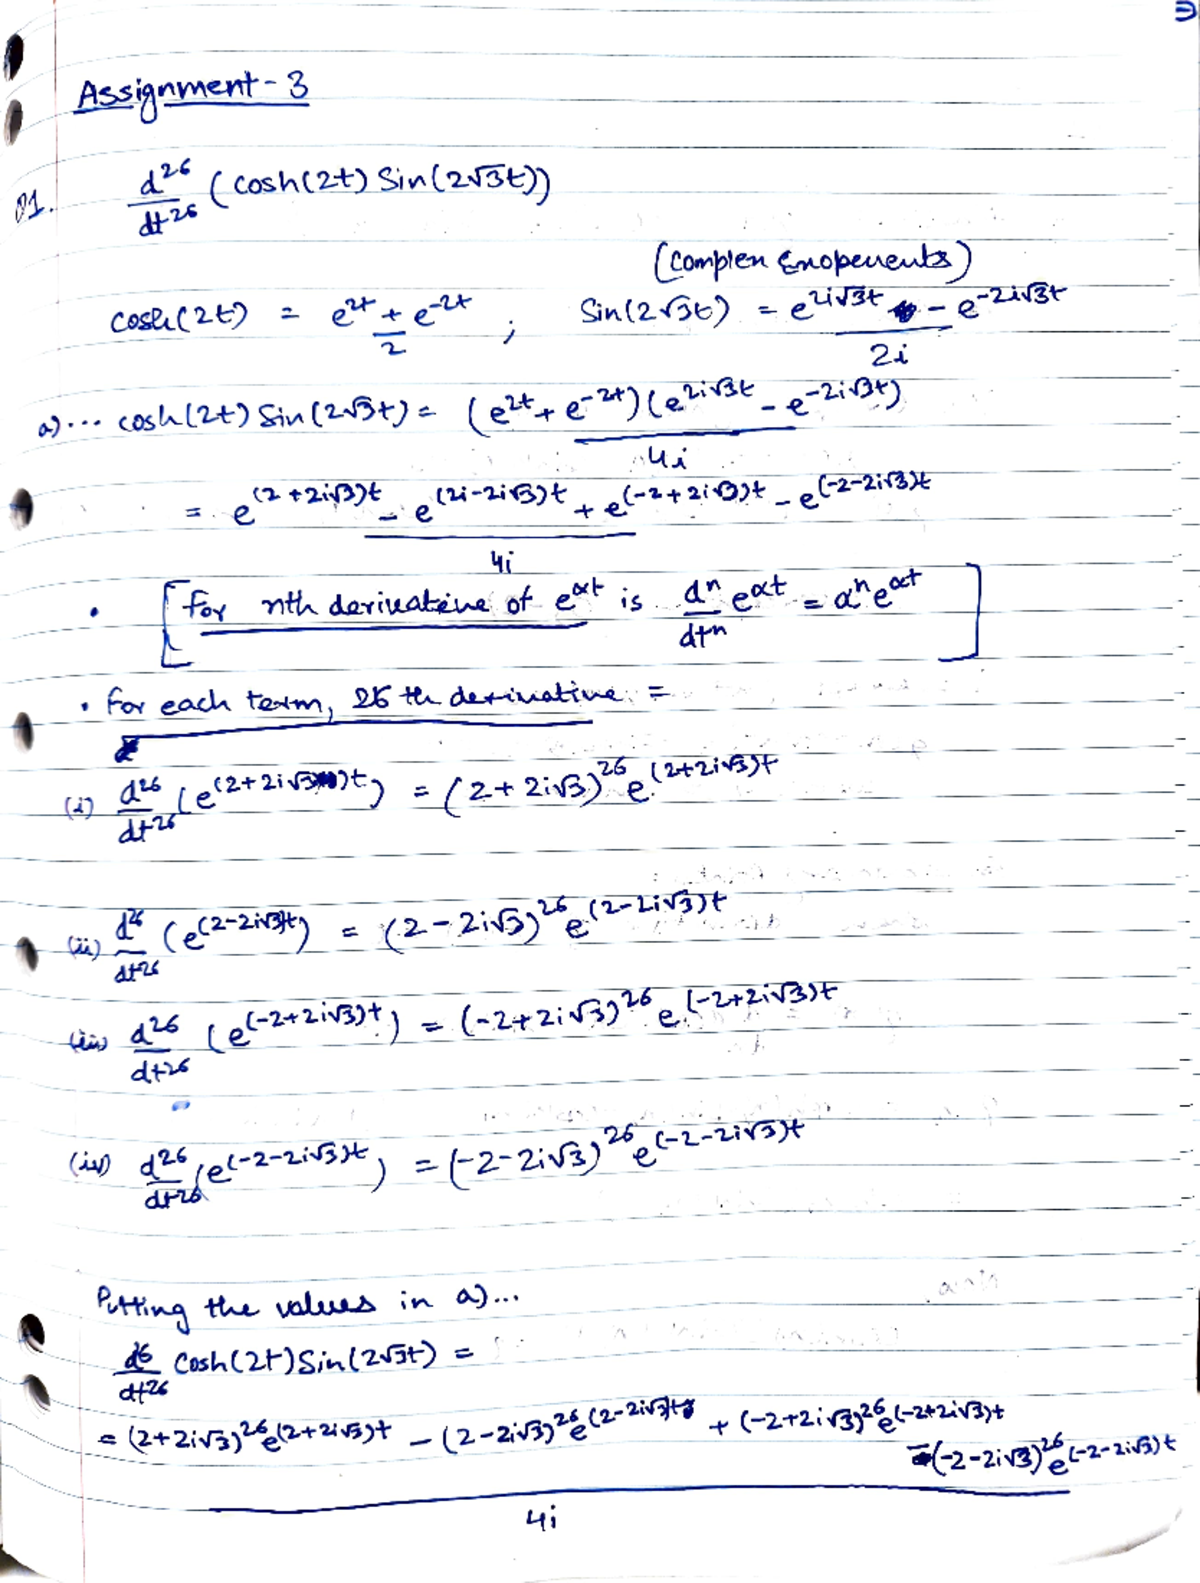 Assignment - 3
Q1. d^26/dt^26 (cosh(2t) Sin(2√3t))
(Complex Exopenents)
cosh(2t) = e^2t + e^-2t / 2 ; Sin(2√3t) = e^2i√3t - e^-2i√3t / 2i
a)... cosh(2t) Sin(2√3t) = (e^2t + e^-2t)(e^2i√3t - e^-2i√3t) / 4i
= e^(2+2i√3)t - e^(2i-2i√3)t + e^(-2+2i√3)t - e^(-2-2i√3)t / 4i
• [For nth derivative of e^αt is d^n/dt^n e^αt = α^n e^αt]
• For each term, 26 th derivative =
(i) d^26/dt^26 (e^(2+2i√3)t) = (2+2i√3)^26 e^(2+2i√3)t
(ii) d^26/dt^26 (e^(2-2i√3)t) = (2-2i√3)^26 e^(2-2i√3)t
(iii) d^26/dt^26 (e^(-2+2i√3)t) = (-2+2i√3)^26 e^(-2+2i√3)t
(iv) d^26/dt^26 (e^(-2-2i√3)t) = (-2-2i√3)^26 e^(-2-2i√3)t
Putting the values in a)...
d^26/dt^26 Cosh(2t) Sin(2√3t) =
= (2+2i√3)^26 e^(2+2i√3)t - (2-2i√3)^26 e^(2-2i√3)t + (-2+2i√3)^26 e^(-2+2i√3)t
-(-2-2i√3)^26 e^(-2-2i√3)t
4i